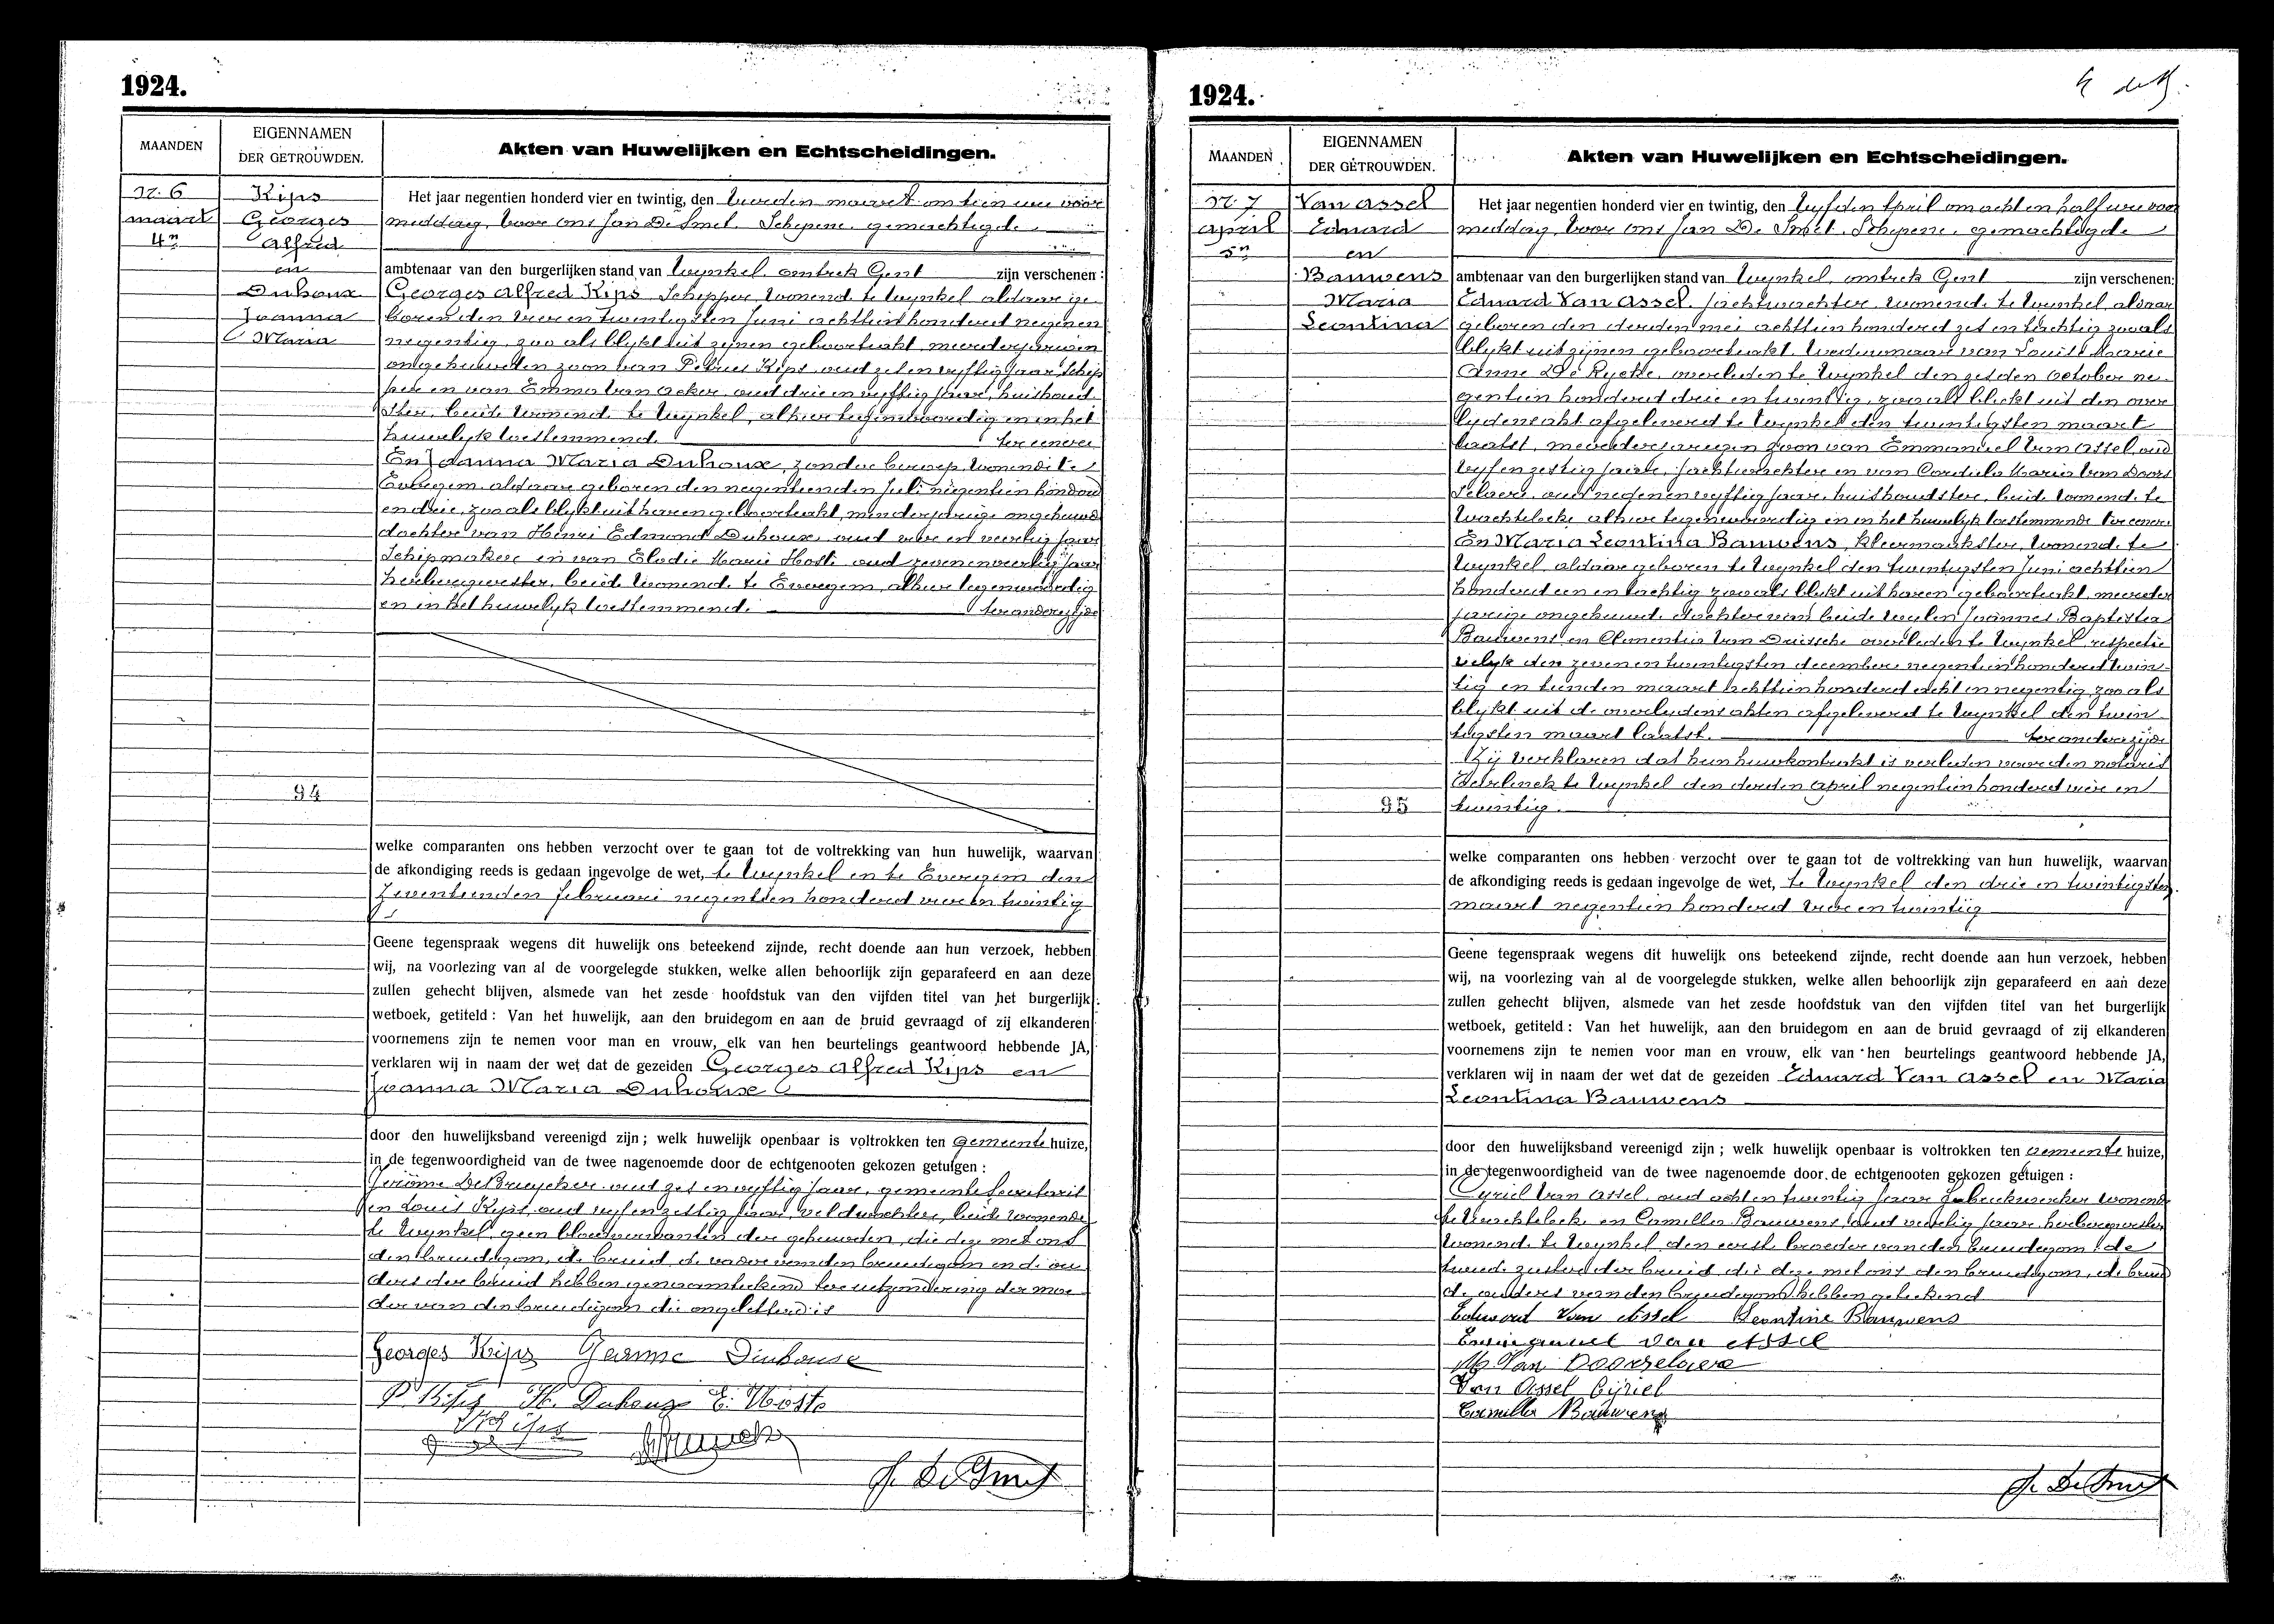 1924.
MAANDEN
EIGENNAMEN
DER GETROUWDEN.
Akten van Huwelijken en Echtscheidingen.
N. 6
maart
4n
Kips
Georges
Alfred
en
Duhoux
Joanna
Maria
94
Het jaar negentien honderd vier en twintig, den vierden maart om tien ure voor
middag, voor ons Jan De Smet, Schepene, gemachtigde
ambtenaar van den burgerlijken stand van Wynkel, omtrek Gent zijn verschenen:
Georges Alfred Kips, Schipper, wonend te Wynkel aldaar ge
boren den vier en twintigsten Juni achttien honderd negen en
negentig, zoo als blykt uit zynen geboorteakt, meerderjarigen
ongehuwden zoon van Petrus Kips, oud zes en vyftig jaar, schip
per en van Emma Van Acker, oud drie en vyftig jaar, huishoud
ster, beide wonend te Wynkel, alhier tegenwoordig en in het
huwelyk toestemmend. ter eener
En Joanna Maria Duhoux, zonder beroep, wonend te
Evergem, aldaar geboren den negentienden Juli negentien honderd
en drie, zoo als blykt uit haren geboorteakt, minderjarige ongehuwde
dochter van Henri Edmond Duhoux, oud vier en veertig jaar
Schipmaker en van Elodie Marie Hoste oud zeven en veertig jaar
herbergierster, beide wonend te Evergem, alhier tegenwoordig
en in het huwelyk toestemmend. ter anderzyde
welke comparanten ons hebben verzocht over te gaan tot de voltrekking van hun huwelijk, waarvan
de afkondiging reeds is gedaan ingevolge de wet, te Wynkel en te Evergem den
zeventienden februari negentien honderd vier en twintig
Geene tegenspraak wegens dit huwelijk ons beteekend zijnde, recht doende aan hun verzoek, hebben
wij, na voorlezing van al de voorgelegde stukken, welke allen behoorlijk zijn geparafeerd en aan deze
zullen gehecht blijven, alsmede van het zesde hoofdstuk van den vijfden titel van het burgerlijk
wetboek, getiteld: Van het huwelijk, aan den bruidegom en aan de bruid gevraagd of zij elkanderen
voornemens zijn te nemen voor man en vrouw, elk van hen beurtelings geantwoord hebbende JA,
verklaren wij in naam der wet dat de gezeiden Georges Alfred Kips en
Joanna Maria Duhoux
door den huwelijksband vereenigd zijn; welk huwelijk openbaar is voltrokken ten gemeente huize,
in de tegenwoordigheid van de twee nagenoemde door de echtgenooten gekozen getuigen:
Jerôme De Bruycker, oud zes en vyftig jaar, gemeente Secretaris
en Louis Kips, oud vyf en zestig jaar, veldwachter, beide wonende
te Wynkel, geen bloedverwanten der gehuwden, die deze met ons
den bruidegom, de bruid, de vader van den bruidegom en de ou
ders der bruid hebben genaamteekend ter uitzondering der moe
der van den bruidegom die ongeletterd is
Georges Kips
P Kips H. Duhoux E. Hoste
J. De Smet
1924.
MAANDEN
EIGENNAMEN
DER GETROUWDEN.
Akten van Huwelijken en Echtscheidingen.
N. 7
april
5n
Van Assel
Eduard
en
Bauwens
Maria
Leontina
95
Het jaar negentien honderd vier en twintig, den vyfden April om acht en half ure voor
middag, voor ons Jan De Smet, Schepene, gemachtigde
ambtenaar van den burgerlijken stand van Wynkel, omtrek Gent zijn verschenen:
Eduard Van Assel, jachtwachter, wonend te Wynkel, aldaar
geboren den derden mei achttien honderd zes en tachtig zooals
blykt uit zijnen geboorteakt. Weduwnaar van Louise Marie
Anne De Rycke, overleden te Wynkel den zesden October ne
gentien honderd drie en twintig, zooals blykt uit den over
lydensakt afgeleverd te Wynkel den twintigsten maart
laatst, meerderjarigen zoon van Emmanuel Van Assel, oud
vyf en zestig jaar, jachtwachter en van Cordula Maria Van Doors
selaere, oud negen en vyftig jaar, huishoudster, beide wonende te
Wachtebeke, alhier tegenwoordig en in het huwelyk toestemmende ter eenere
En Maria Leontina Bauwens, Kleermaakster, wonend te
Wynkel, aldaar geboren te Wynkel den twintigsten Juni achttien
honderd een en tachtig zooals blykt uit haren geboorteakt, meerder
jarige ongehuwde dochter van beide wylen Joannes Baptista
Bauwens en Clementia Van Driesche overleden te Wynkel, respectie
velyk den zeven en twintigsten december negentien honderd twin
tig en tienden maart achttien honderd acht en negentig, zooals
blykt uit de overlydensakten afgeleverd te Wynkel den twin
tigsten maart laatst. ter anderzijde
Zij verklaren dat hun huwkontrakt is verleden voor den notaris
te Wynkel den derden April negentien honderd vier en
twintig.
welke comparanten ons hebben verzocht over te gaan tot de voltrekking van hun huwelijk, waarvan
de afkondiging reeds is gedaan ingevolge de wet, te Wynkel den drie en twintigsten
maart negentien honderd vier en twintig
Geene tegenspraak wegens dit huwelijk ons beteekend zijnde, recht doende aan hun verzoek, hebben
wij, na voorlezing van al de voorgelegde stukken, welke allen behoorlijk zijn geparafeerd en aan deze
zullen gehecht blijven, alsmede van het zesde hoofdstuk van den vijfden titel van het burgerlijk
wetboek, getiteld: Van het huwelijk, aan den bruidegom en aan de bruid gevraagd of zij elkanderen
voornemens zijn te nemen voor man en vrouw, elk van hen beurtelings geantwoord hebbende JA,
verklaren wij in naam der wet dat de gezeiden Eduard Van Assel en Maria
Leontina Bauwens
door den huwelijksband vereenigd zijn; welk huwelijk openbaar is voltrokken ten gemeente huize,
in de tegenwoordigheid van de twee nagenoemde door de echtgenooten gekozen getuigen:
Cyriel Van Assel, oud acht en twintig jaar, fabriekwerker wonende
te Wachtebeke en Camilla Bauwens, oud veertig jaar, herbergierster
wonend te Wynkel, den eerste broeder van den bruidegom, de
tweede zuster der bruid, die deze met ons den bruidegom, de bruid
de ouders van den bruidegom hebben geteekend
Edward Van Assel Leontine Bauwens
Emmanuel Van Assel
M. Van Doorselaere
Van Assel Cyriel
Camilla Bauwens
J. De Smet